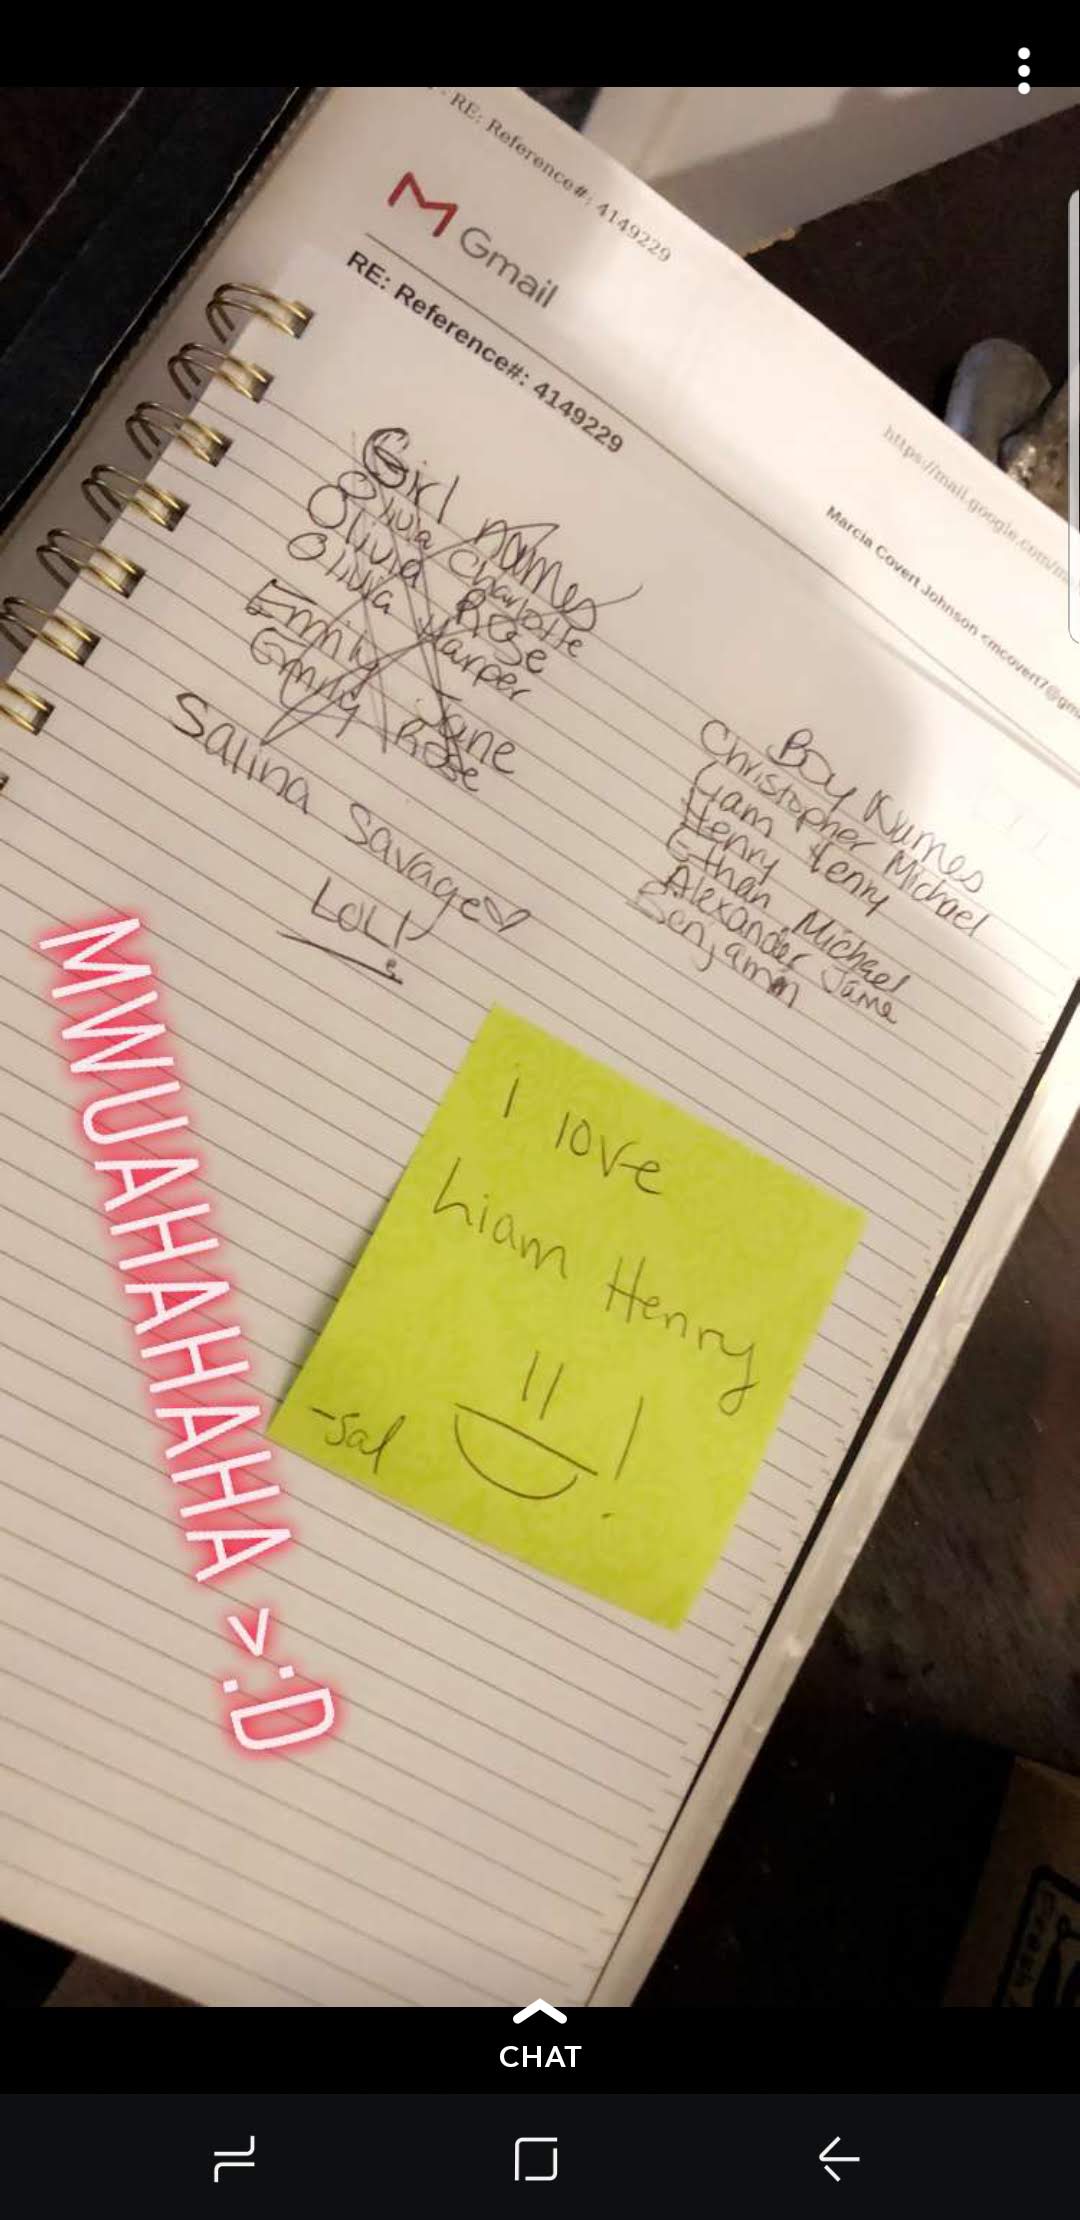 RE: Reference#: 4149229
Gmail
RE: Reference#: 4149229
https://mail.google.com/
Marcia Covert Johnson <mcovert7@gm
Girl names
Olivia Charlotte
Olivia Rose
Olivia Harper
Emily Jane
Emily Rose
Salina Savage♡
LOL!
Boy Names
Christopher Michael
Liam Henry
Henry
Ethan Michael
Alexander Jame
Benjamin
i love
Liam Henry
!
-sal
MWUAHAHAHAHA >:D
CHAT